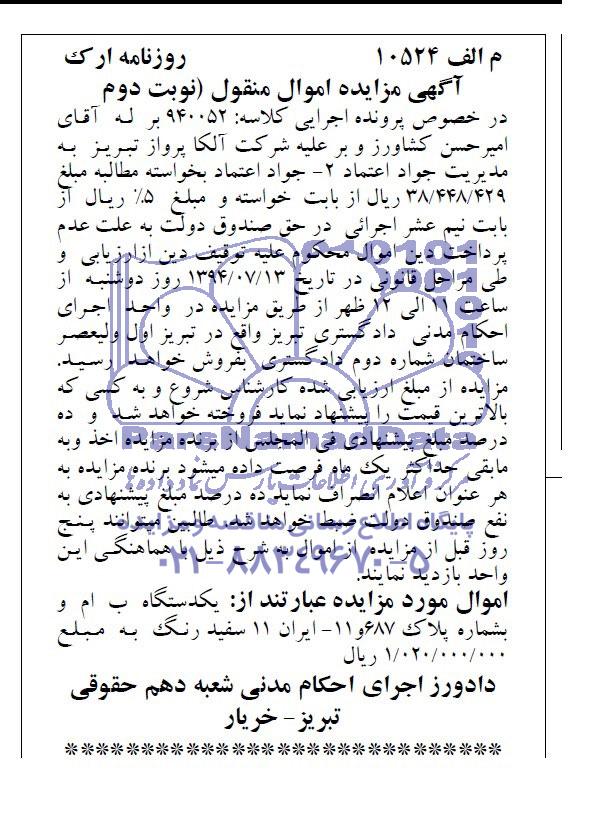 م الف ۱۰۵۲۴ روزنامه ارک
آگهی مزایده اموال منقول (نوبت دوم
در خصوص پرونده اجرایی کلاسه: ۹۴۰۰۵۲ بر له آقای
امیرحسن کشاورز و بر علیه شرکت آلکا پرواز تبریز به
مدیریت جواد اعتماد ۲- جواد اعتماد بخواسته مطالبه مبلغ
۳۸/۴۴۸/۴۲۹ ریال از بابت خواسته و مبلغ ۵٪ ریال از
بابت نیم عشر اجرائی در حق صندوق دولت به علت عدم
پرداخت دین اموال محکوم علیه توقیف دین ازارزیابی و
طی مراحل قانونی در تاریخ ۱۳۹۴/۰۷/۱۳ روز دوشنبه از
ساعت ۱۱ الی ۱۲ ظهر از طریق مزایده در واحد اجرای
احکام مدنی دادگستری تبریز واقع در تبریز اول ولیعصر
ساختمان شماره دوم دادگستری بفروش خواهد رسید.
مزایده از مبلغ ارزیابی شده کارشناس شروع و به کسی که
بالاترین قیمت را پیشنهاد نماید فروخته خواهد شد و ده
درصد مبلغ پیشنهادی فی المجلس از برنده مزایده اخذ وبه
مابقی حداکثر یک ماه فرصت داده میشود برنده مزایده به
هر عنوان اعلام انصراف نماید ده درصد مبلغ پیشنهادی به
نفع صندوق دولت ضبط خواهد شد. طالبین میتوانند پنج
روز قبل از مزایده از اموال به شرح ذیل با هماهنگی این
واحد بازدید نمایند.
اموال مورد مزایده عبارتند از: یکدستگاه ب ام و
بشماره پلاک ۶۸۷و۱۱- ایران ۱۱ سفید رنگ به مبلغ
۱/۰۲۰/۰۰۰/۰۰۰ ریال
دادورز اجرای احکام مدنی شعبه دهم حقوقی
تبریز- خریار
ParsNamadData
پایگاه اطلاع رسانی مناقصه و مزایده
۰۲۱-۸۸۳۴۹۶۷۰-۵